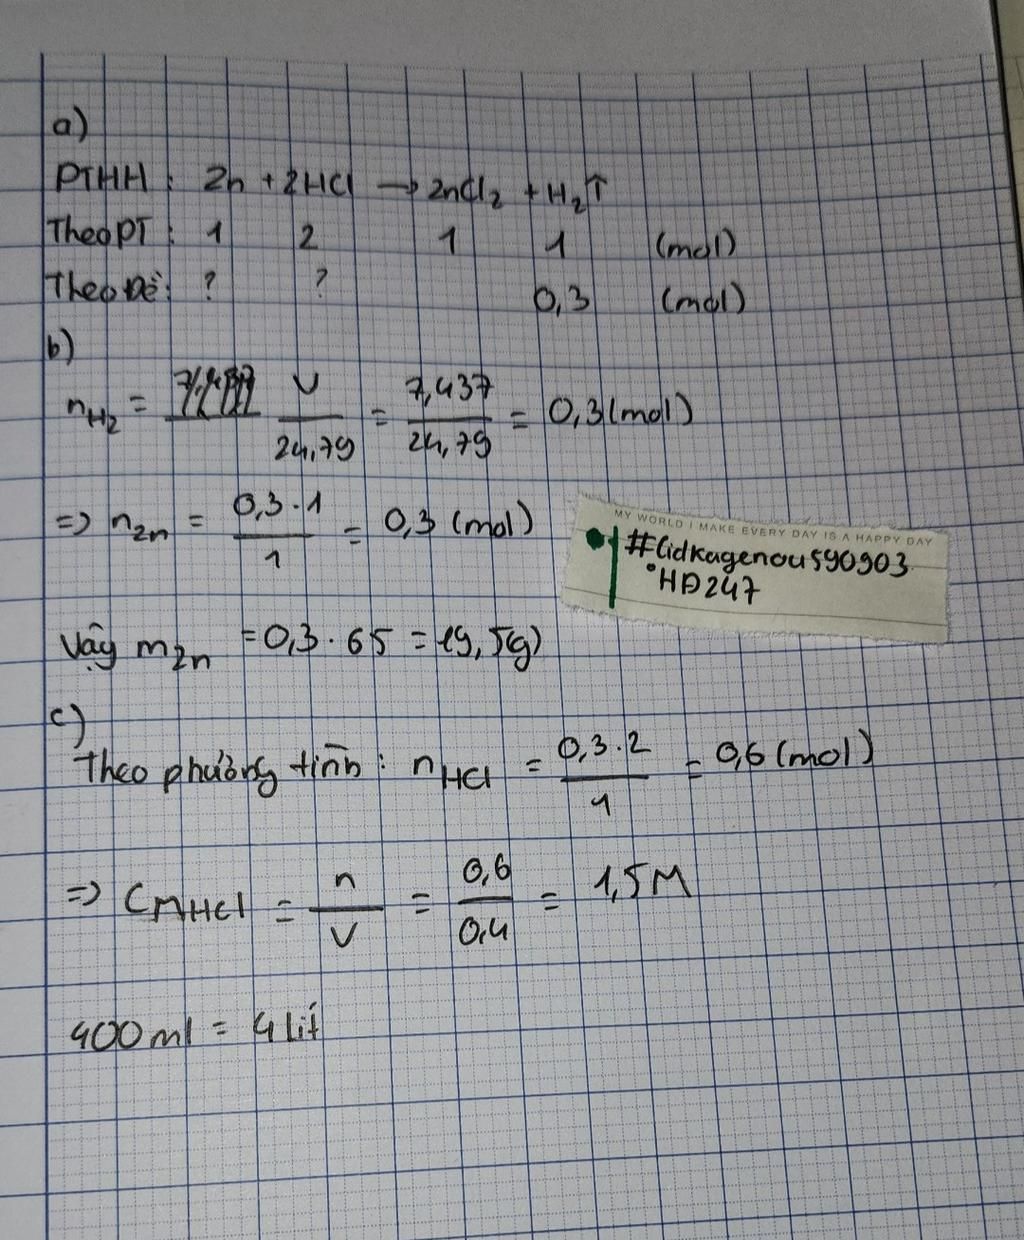 a)
PTHH : Zn + 2HCl → ZnCl₂ + H₂↑
Theo PT : 1 2 1 1 (mol)
Theo Đề : ? ? 0,3 (mol)
b)
n H₂ = V/24,79 = 7,437/24,79 = 0,3 (mol)
=> n Zn = 0,3 . 1/1 = 0,3 (mol)
MY WORLD I MAKE EVERY DAY IS A HAPPY DAY
#Cidkagenou590903
HD247
Vậy m Zn = 0,3 . 65 = 19,5g)
c)
Theo phương tình : n HCl = 0,3 . 2/1 = 0,6 (mol)
=> CM HCl = n/V = 0,6/0,4 = 1,5M
400 ml = 4 lít